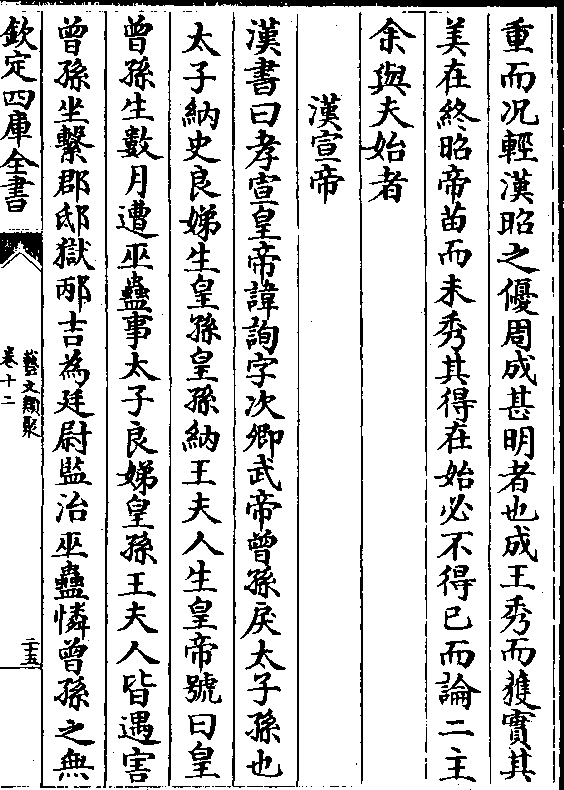 重而况輕漢昭之優周成甚明者也成王秀而獲實其
美在終昭帝苗而未秀其得在始必不得已而論二主
余與夫始者
漢宣帝
漢書曰孝宣皇帝諱詢字次卿武帝曾孫戾太子孫也
太子納史良娣生皇孫皇孫納王夫人生皇帝號曰皇
曾孫生數月遭巫蠱事太子良娣皇孫王夫人皆遇害
曾孫坐繫郡邸獄邴吉為廷尉監治巫蠱憐曾孫之無
欽定四庫全書
藝文類聚
卷十二
二五